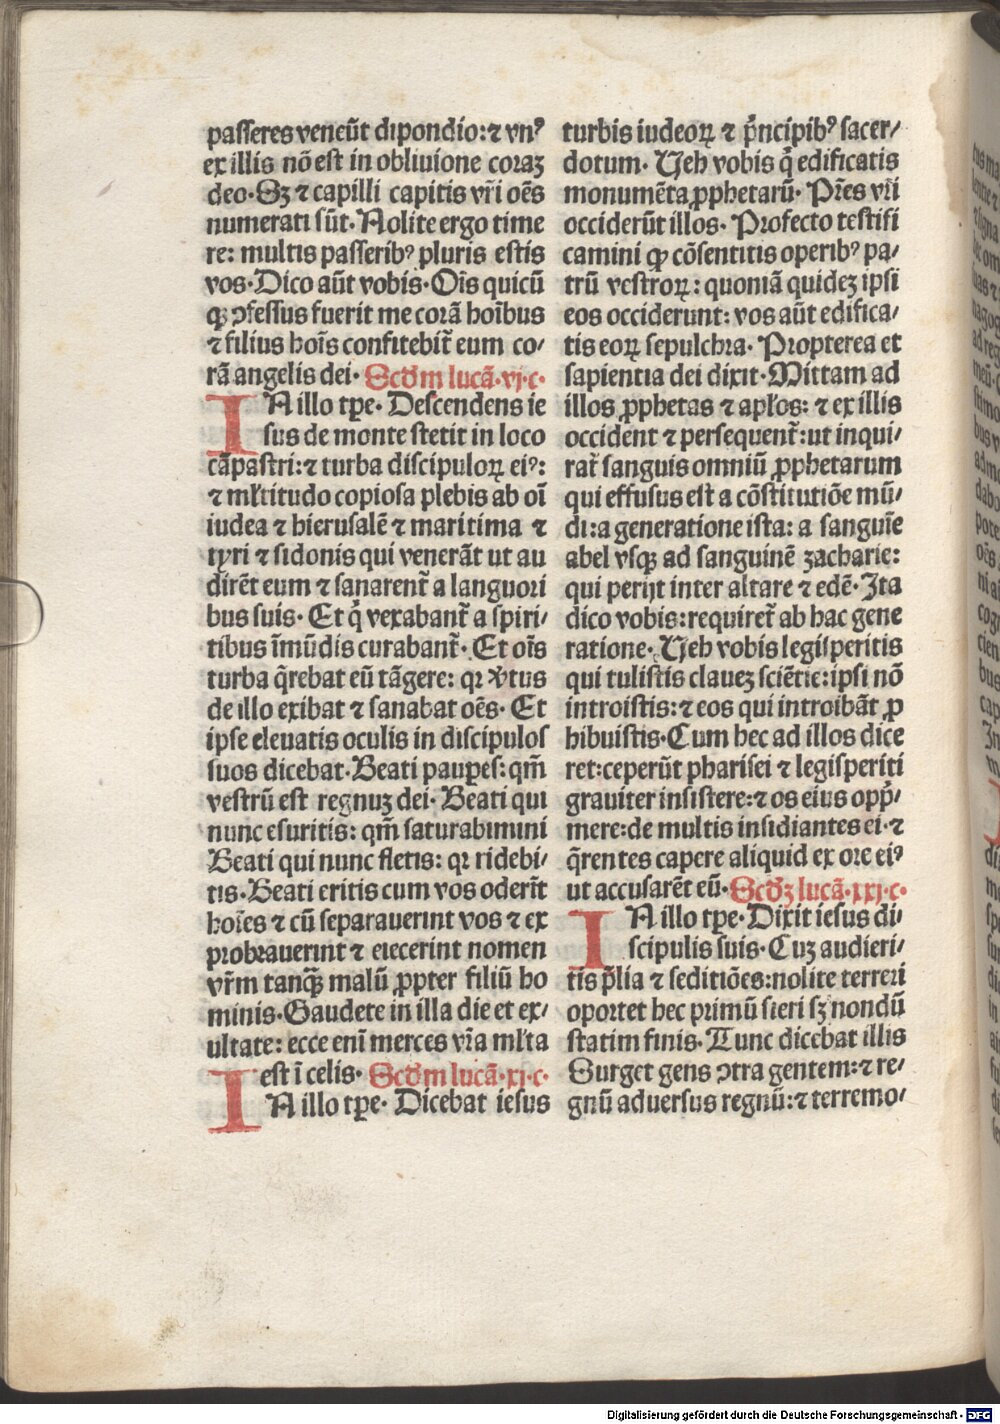 paſſeres veneūt dipondio: ⁊ vnꝰ
ex illis nō eſt in obliuione coraꝫ
deo. Sꝫ ⁊ capilli capitis vr̄i oēs
numerati ſūt. Nolite ergo time
re: multis paſſeribꝰ pluris eſtis
vos. Dico aūt vobis. Oīs quicū
qꝫ ↄfeſſus fuerit me corā hoībus
⁊ filius hoīs confitebit̄ eum co/
rā angelis dei. Scd̄m lucā.vj.c.
IN illo tꝑe. Deſcendens ie
ſus de monte ſtetit in loco
cāpaſtri: ⁊ turba diſcipuloꝝ eiꝰ:
⁊ ml̄titudo copioſa plebis ab oī
iudea ⁊ hieruſalē ⁊ maritima ⁊
tyri ⁊ ſidonis qui venerāt ut au
dirēt eum ⁊ ſanarent̄ a languori
bus ſuis. Et q̄ vexabant̄ a ſpiri/
tibus īmūdis curabant̄. Et oīs
turba q̄rebat eū tāgere: qꝛ v̄tus
de illo exibat ⁊ ſanabat oēs. Et
ipſe eleuatis oculis in diſcipuloſ
ſuos dicebat. Beati pauꝑeſ: qm̄
veſtrū eſt regnuꝫ dei. Beati qui
nunc eſuritis: qm̄ ſaturabimini
Beati qui nunc fletis: qꝛ ridebi/
tis. Beati eritis cum vos oderīt
hoīes ⁊ cū ſeparauerint vos ⁊ ex
probrauerint ⁊ eiecerint nomen
vr̄m tanqꝫ malū ꝓpter filiū ho
minis. Gaudete in illa die et ex/
ultate: ecce enī merces vr̄a ml̄ta
eſt ī celis. Scd̄m lucā.xj.c.
IN illo tꝑe. Dicebat ieſus
turbis iudeoꝝ ⁊ p̄ncipibꝰ ſacer/
dotum. Veh vobis q̄ edificatis
monumēta ꝓphetarū. Pr̄es vr̄i
occiderūt illos. Profecto teſtifi
camini ꝙ cōſentitis operibꝰ pa/
trū veſtroꝝ: quoniā quideꝫ ipſi
eos occiderunt: vos aūt edifica/
tis eoꝝ ſepulchra. Propterea et
ſapientia dei dixit. Mittam ad
illos ꝓphetas ⁊ apl̄os: ⁊ ex illis
occident ⁊ perſequent̄: ut inqui/
rat̄ ſanguis omniū ꝓphetarum
qui effuſus eſt a cōſtitutiōe mū/
di: a generatione iſta: a ſanguīe
abel vſqꝫ ad ſanguinē zacharie:
qui perijt inter altare ⁊ edē. Ita
dico vobis: requiret̄ ab hac gene
ratione. Veh vobis legiſperitis
qui tuliſtis claueꝫ ſciētie: ipſi nō
introiſtis: ⁊ eos qui introibāt ꝓ
hibuiſtis. Cum hec ad illos dice
ret: ceperūt phariſei ⁊ legiſperiti
grauiter inſiſtere: ⁊ os eius opp̄/
mere: de multis inſidiantes ei. ⁊
q̄rentes capere aliquid ex ore eiꝰ
ut accuſarēt eū. Scd̄ꝫ lucā.xxj.c.
IN illo tꝑe. Dixit ieſus di/
ſcipulis ſuis. Cuꝫ audieri/
tis p̄lia ⁊ ſeditiōes: nolite terreri
oportet hec primū fieri ſꝫ nondū
ſtatim finis. Tunc dicebat illis
Surget gens ↄtra gentem: ⁊ re/
gnū aduerſus regnū: ⁊ terremo/
Digitalisierung gefördert durch die Deutsche Forschungsgemeinschaft - DFG